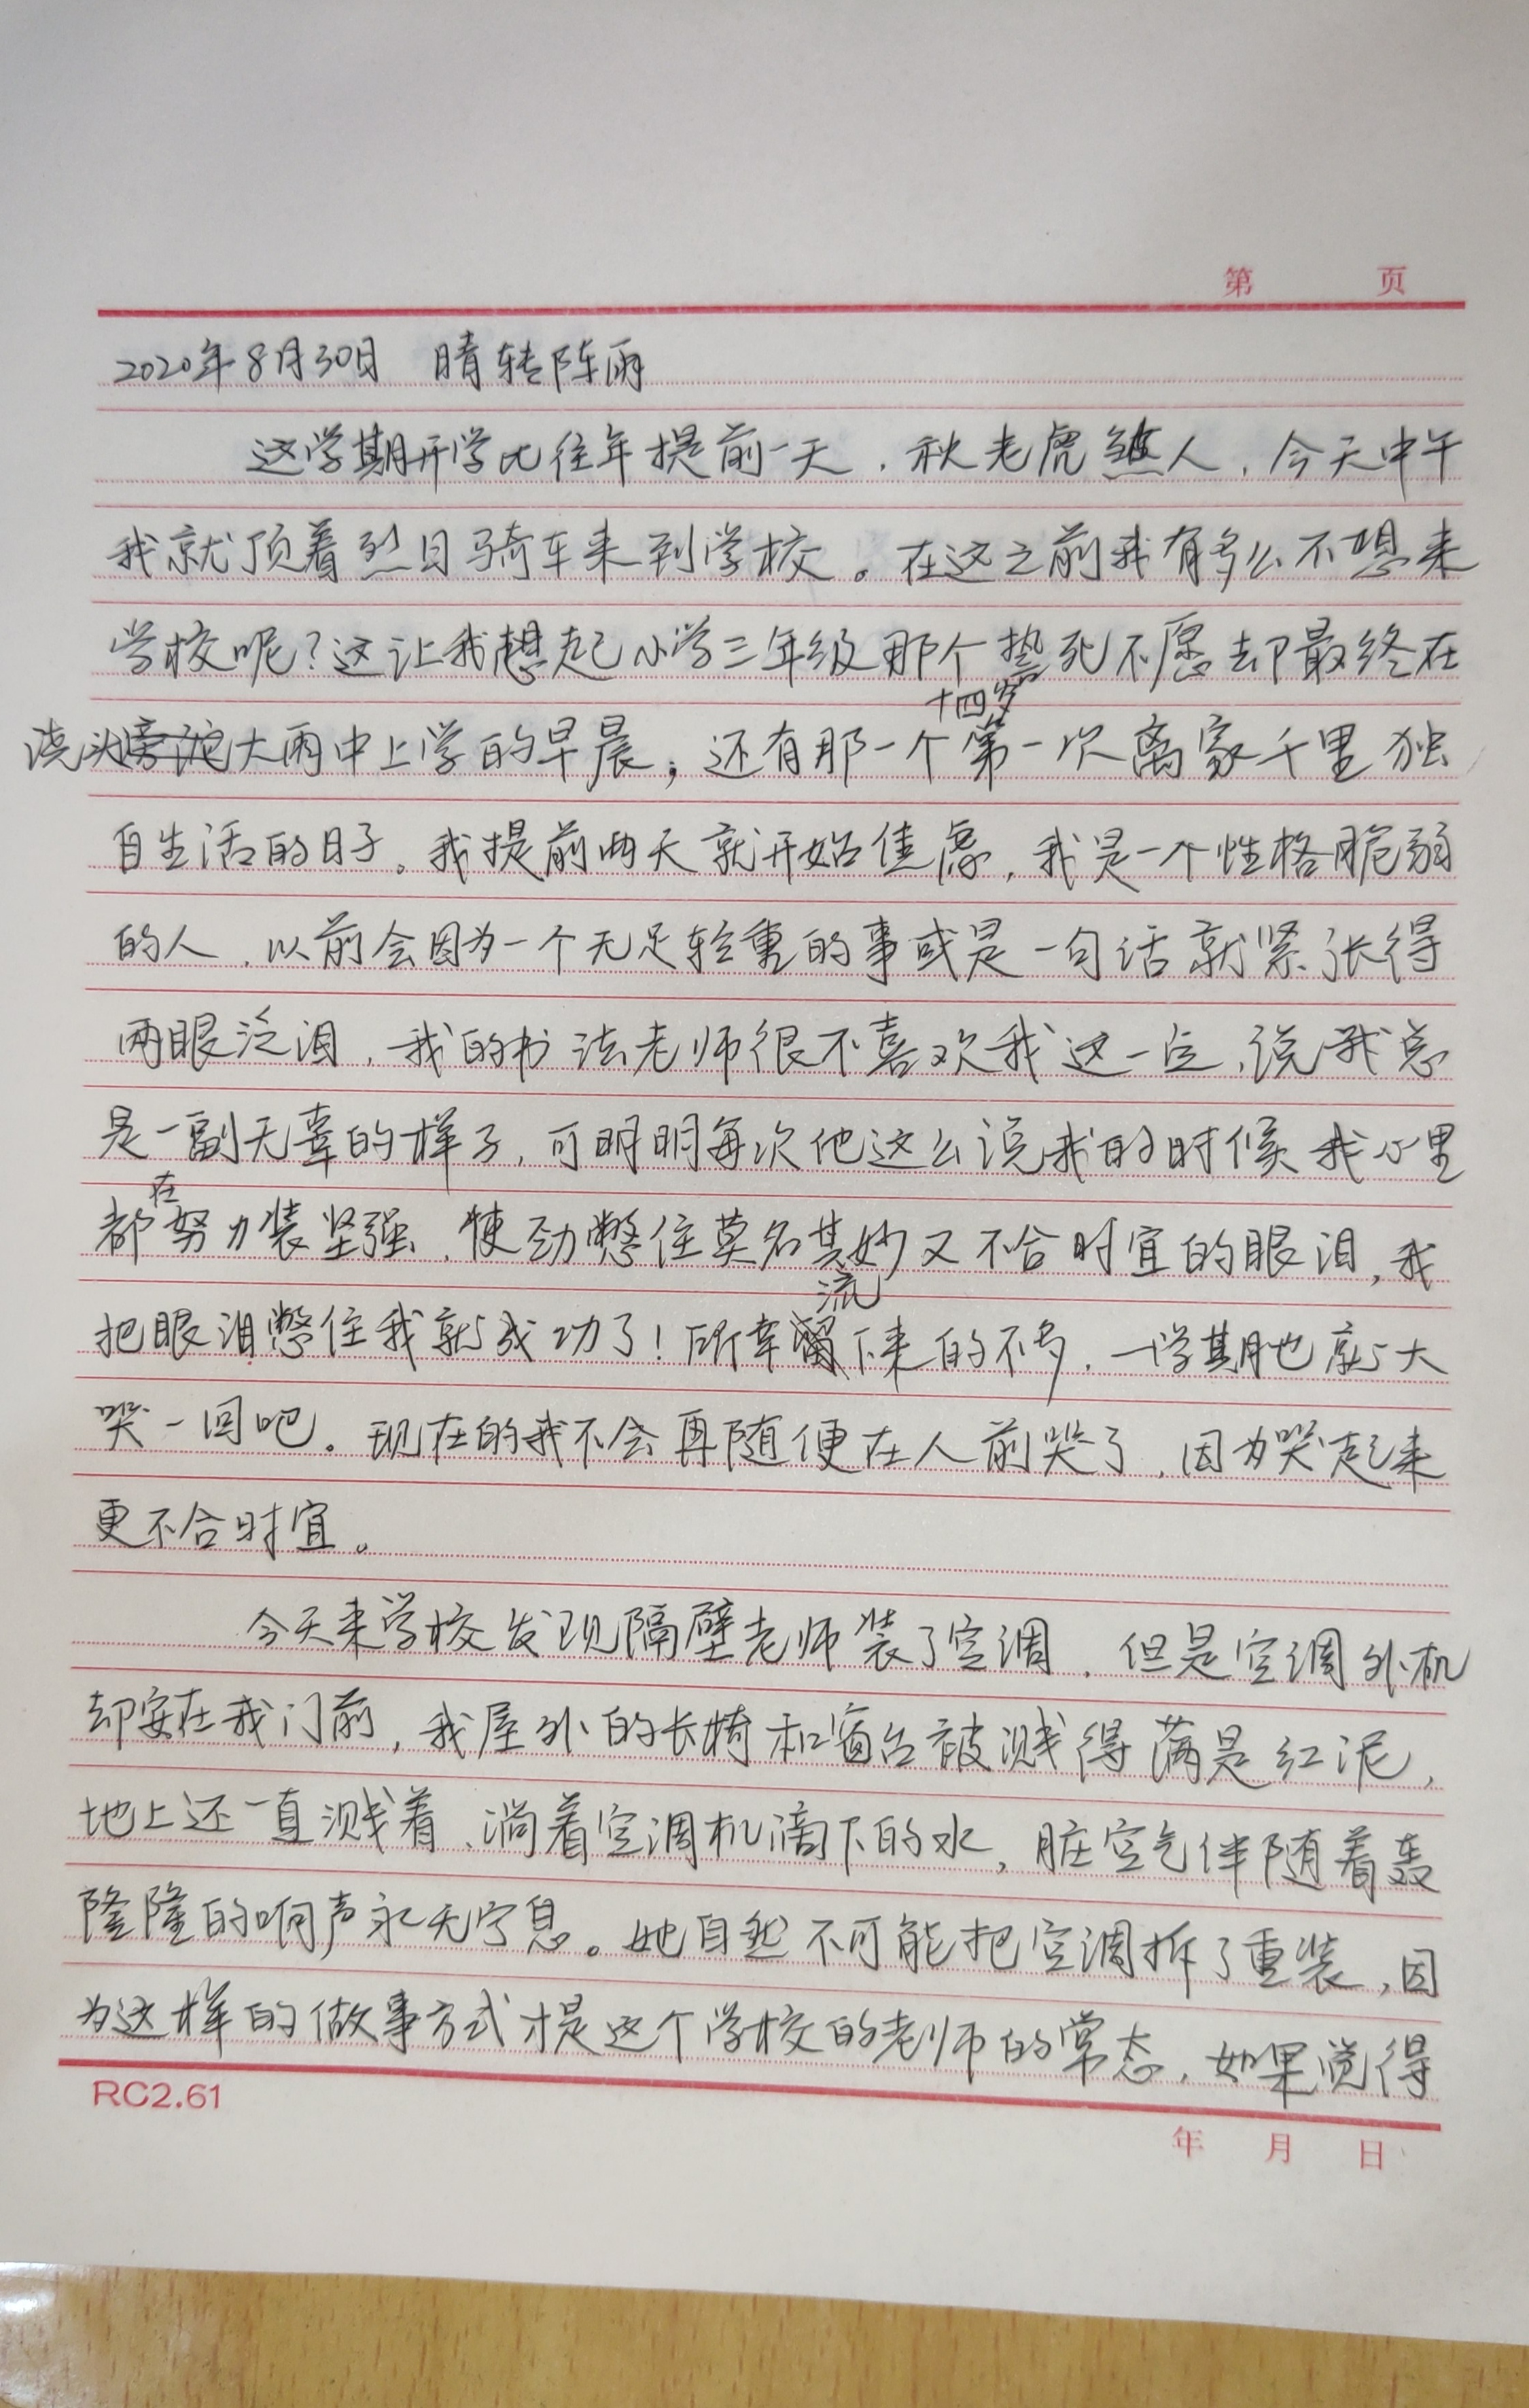 第 页
2020年8月30日 晴转阵雨
这学期开学比往年提前一天，秋老虎人，今天中午
我就顶着烈日骑车来到学校。在这之前我有多么不想来
学校呢？这让我想起小学三年级那个死不愿却最终在
浇头大雨中上学的早晨；还有那一个十四岁第一次离家千里独
自生活的日子。我提前两天就开始焦虑，我是一个性格脆弱
的人，以前会因为一个无足轻重的事或是一句话就紧张得
两眼泛泪，我的书法老师很不喜欢我这一点，说我总
是一副无辜的样子，可明明每次他这么说我的时候我心里
都在努力装坚强，使劲憋住莫名其妙又不合时宜的眼泪，我
把眼泪憋住我就成功了！所幸流下来的不多，一学期也就大
哭一回吧。现在的我不会再随便在人前哭了，因为哭起来
更不合时宜。
今天来学校发现隔壁老师装了空调，但是空调外机
却安在我门前，我屋外的长椅和窗台被溅得满是红泥，
地上还一直溅着、淌着空调机滴下的水，脏空气伴随着轰
隆隆的响声永无宁息。她自然不可能把空调拆了重装，因
为这样的做事方式才是这个学校的老师的常态，如果觉得
RC2.61
年 月 日